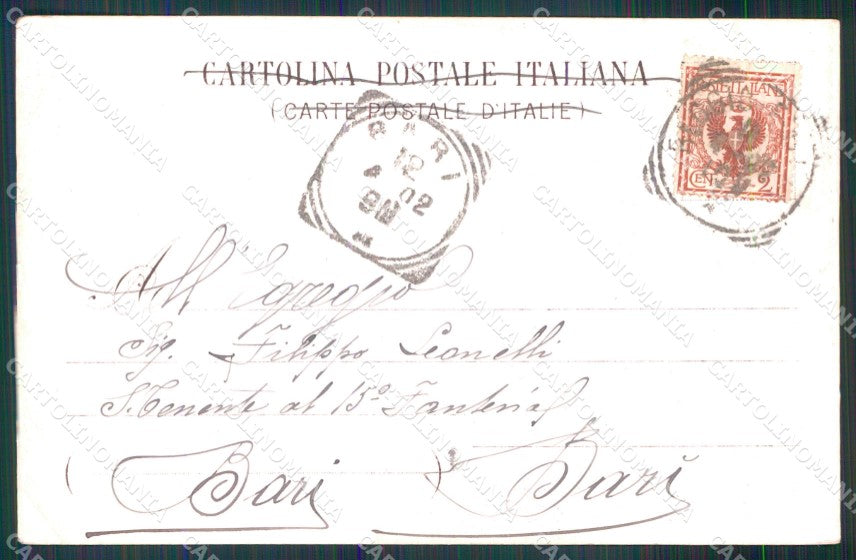 CARTOLINA POSTALE ITALIANA
(CARTE POSTALE D'ITALIE)
POSTE ITALIANE
CEN 2
BARI
12
4 02
8M
All' Egregio
Sig. Filippo Leonelli
S. Tenente al 15º Fanteria
(Bari) Bari
CARTOLINOMANIA